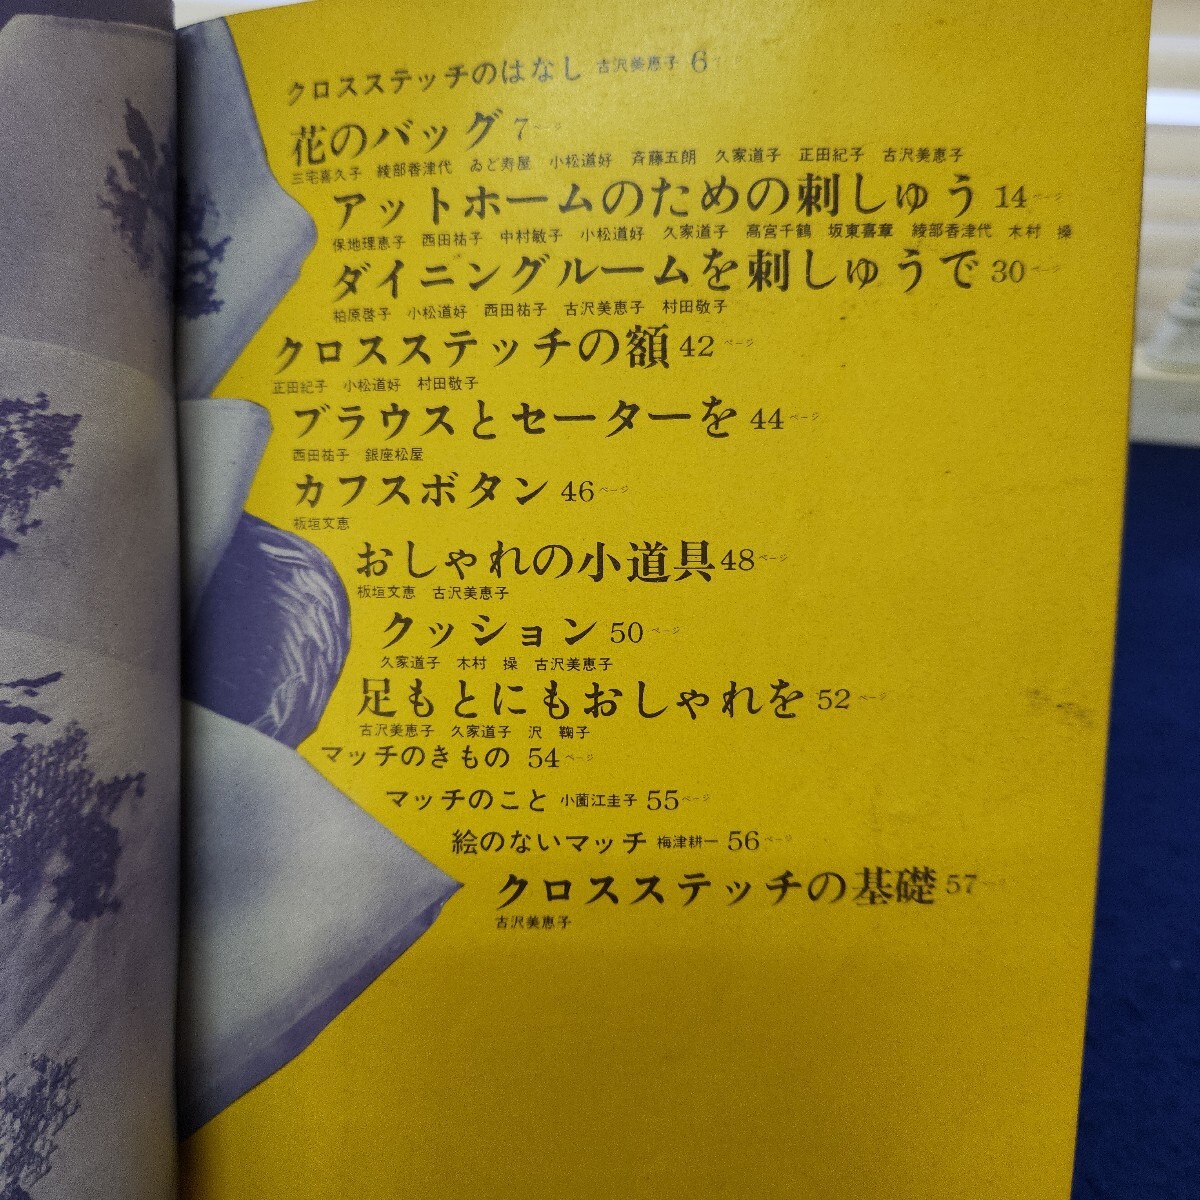 クロスステッチのはなし 古沢美恵子 6
花のバッグ 7ページ
三宅喜久子 綾部香津代 ゐど寿屋 小松道好 斉藤五朗 久家道子 正田紀子 古沢美恵子
アットホームのための刺しゅう 14ページ
保地理恵子 西田祐子 中村敏子 小松道好 久家道子 高宮千鶴 坂東喜章 綾部香津代 木村 操
ダイニングルームを刺しゅうで 30ページ
柏原啓子 小松道好 西田祐子 古沢美恵子 村田敬子
クロスステッチの額 42ページ
正田紀子 小松道好 村田敬子
ブラウスとセーターを 44ページ
西田祐子 銀座松屋
カフスボタン 46ページ
板垣文恵
おしゃれの小道具 48ページ
板垣文恵 古沢美恵子
クッション 50ページ
久家道子 木村 操 古沢美恵子
足もとにもおしゃれを 52ページ
古沢美恵子 久家道子 沢 鞠子
マッチのきもの 54ページ
マッチのこと 小薗江圭子 55ページ
絵のないマッチ 梅津耕一 56ページ
クロスステッチの基礎 57ページ
古沢美恵子